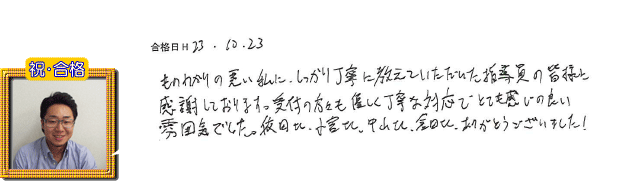 合格日 H 23 . 10 . 23
祝・合格
ものわかりの悪い私に、しっかり丁寧に教えていただいた指導員の皆様に
感謝しております。受付の方々も優しく丁寧な対応でとても感じの良い
雰囲気でした。 中山さん、 ありがとうございました！